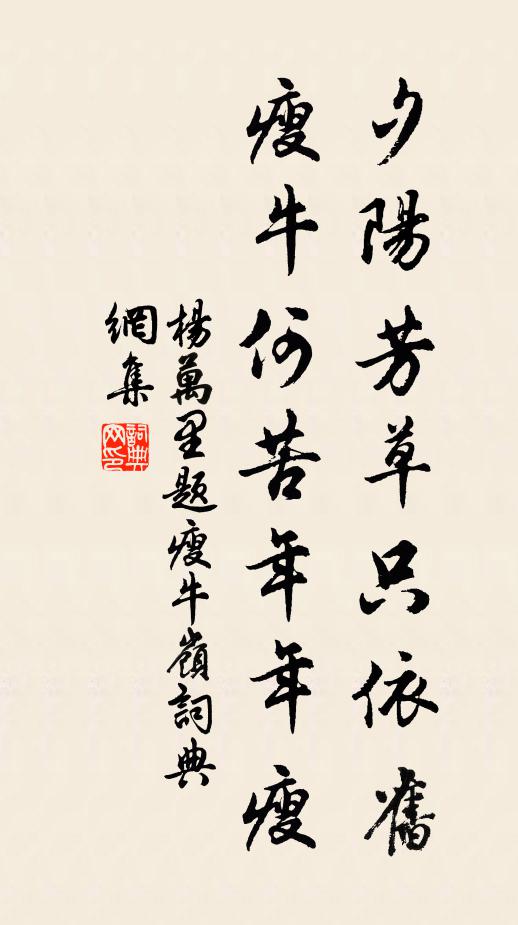 夕陽芳草只依舊
瘦牛何苦年年瘦
楊萬里題瘦牛嶺詞典
網集
詞典
网印